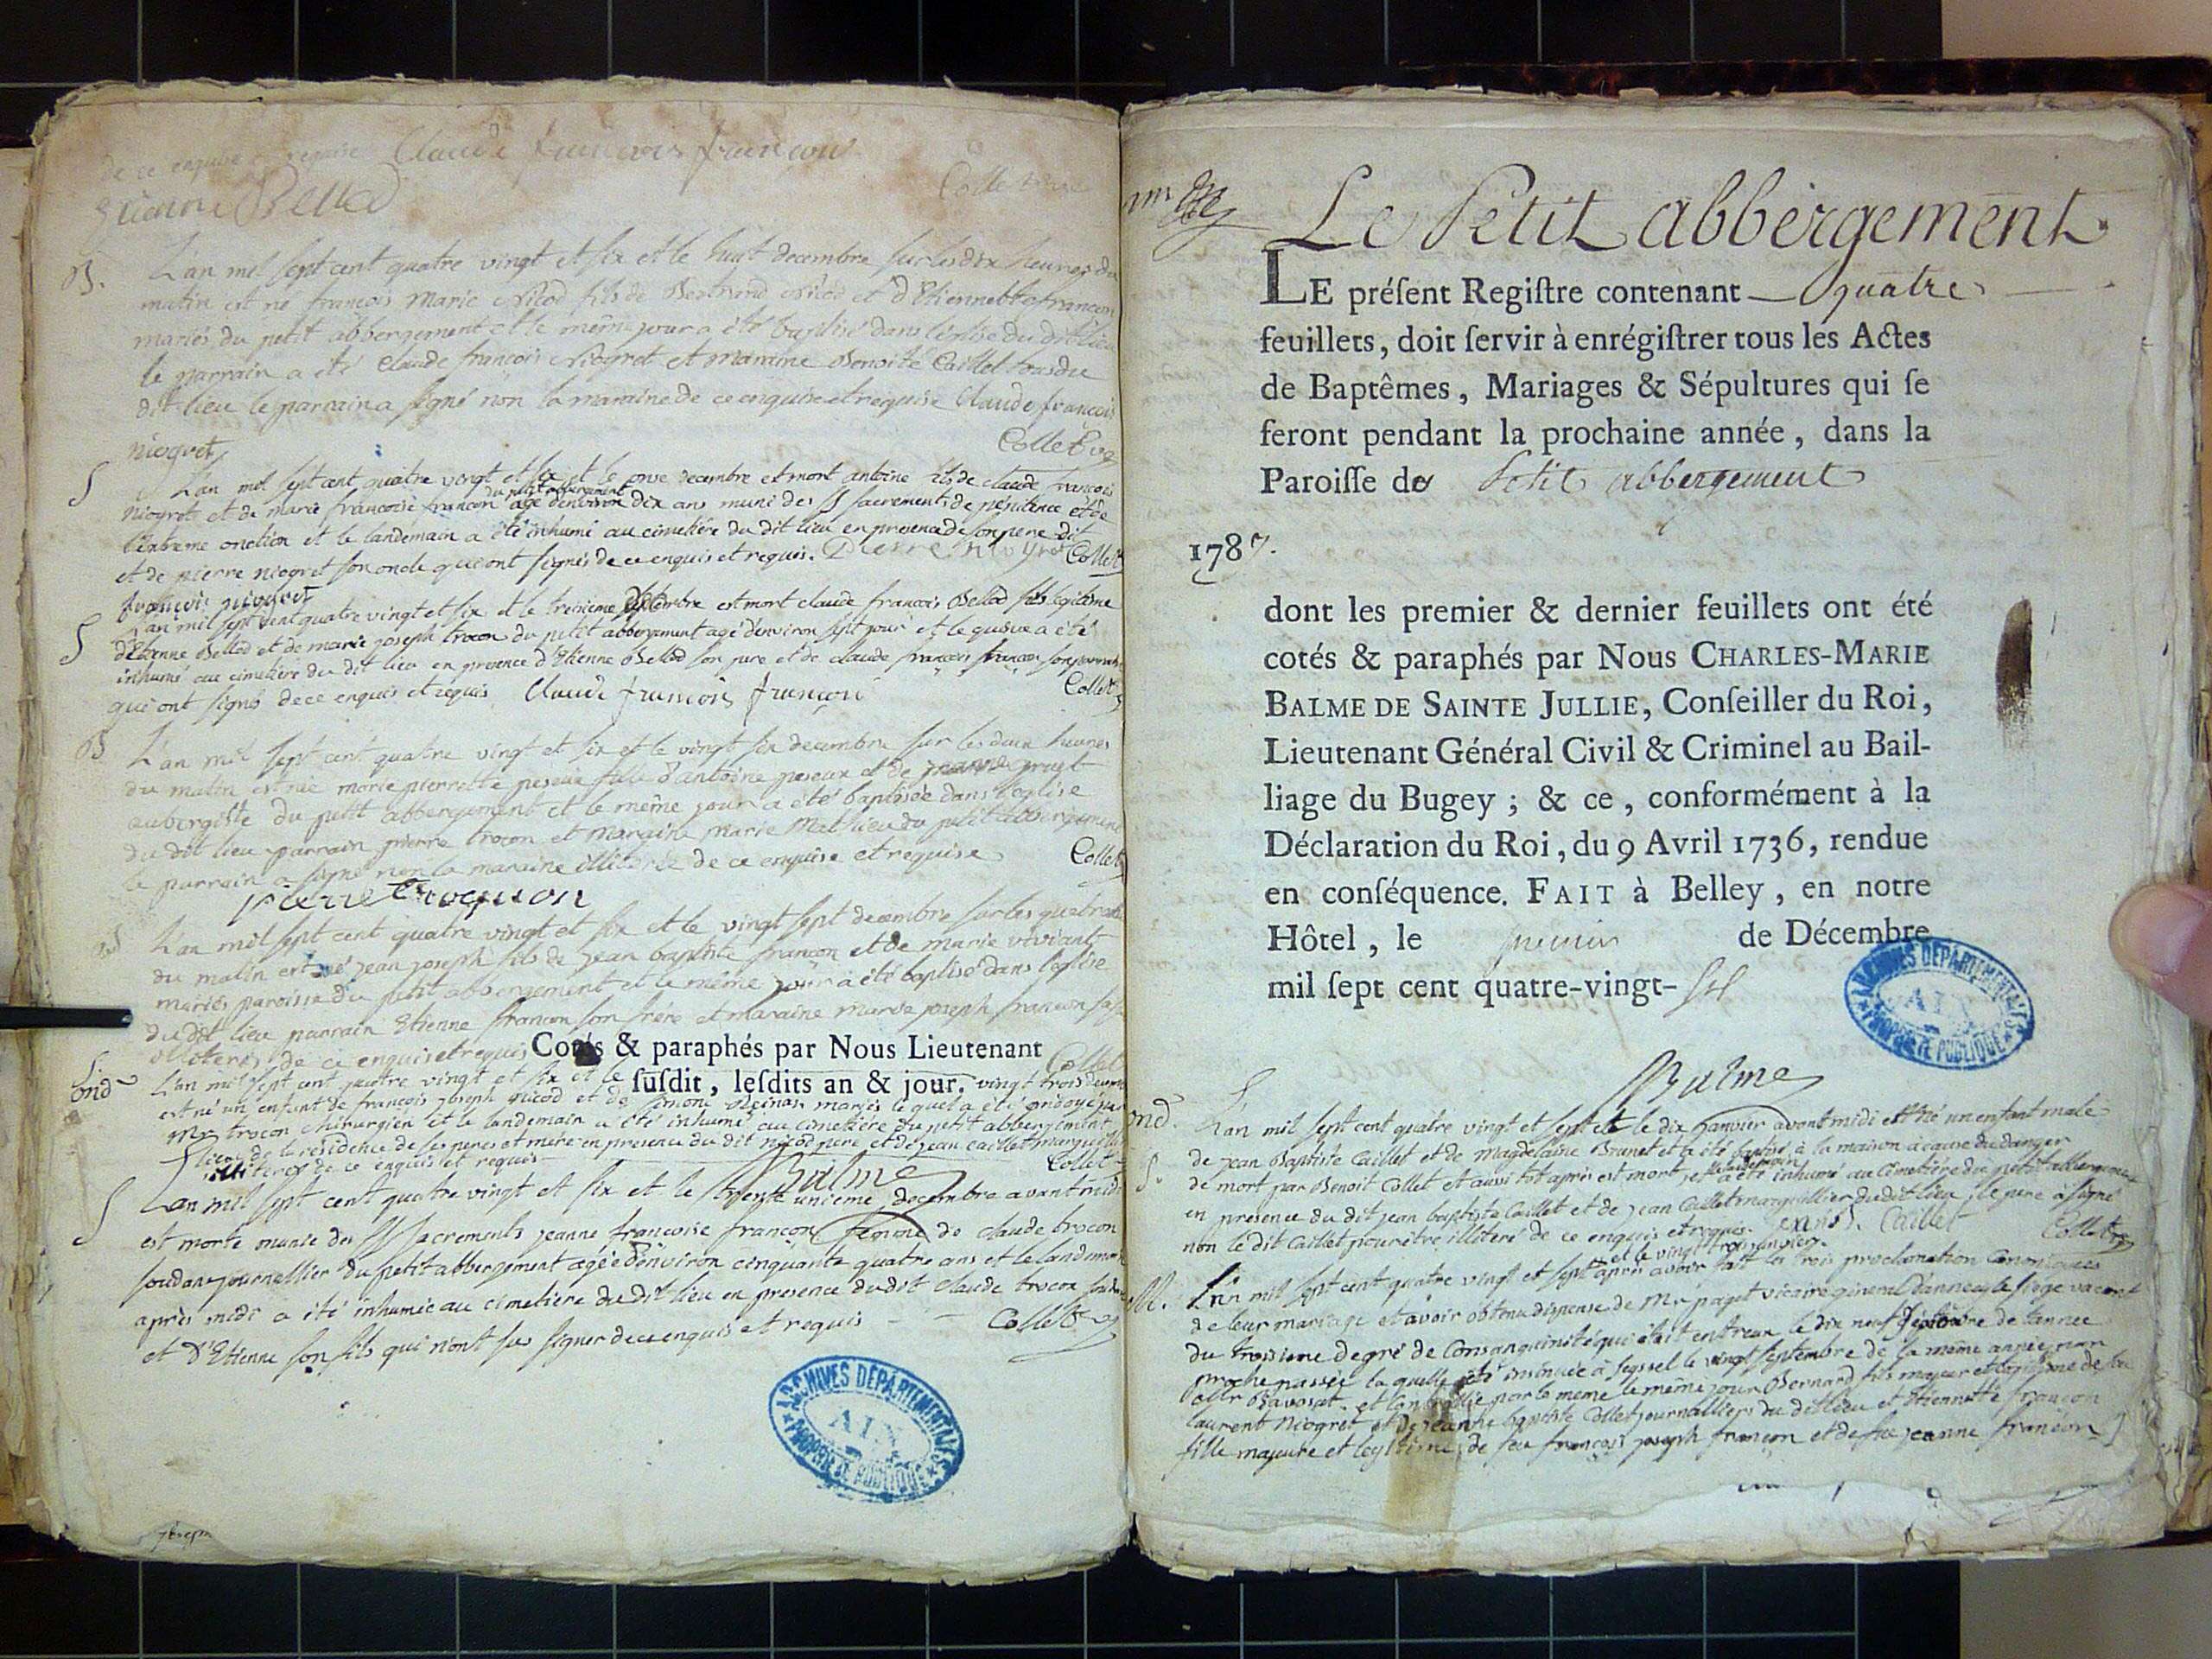 de ce enquise et requise Claude francois françon
Etienne Bellod Collet curé
B. L'an mil sept cent quatre vingt et six et le huit decembre sur les dix heures du
matin est né françois Marie Nicod fils de Bertrand Nicod et d'Etiennette francon
mariés du petit abbergement et le même jour a été baptisé dans l'église du dit lieu
le parrain a été Claude françois Niogret et maraine Benoite Caillet tous du
dit lieu le parrain a signé non la maraine de ce enquise et requise Claude francois
niogret Collet
S L'an mil sept cent quatre vingt et six et le onze decembre est mort antoine fils de claude francois
du petit abbergement
Niogret et de marie francoise francon agé d'environ dix ans muni des SS sacrements de pénitence et de
l'extreme onction et le landemain a été inhumé au cimetière du dit lieu en presence de son pere dit
et de pierre niogret son oncle qui ont signés de ce enquis et requis. Pierre niogret Collet
francois niogret
S L'an mil sept cent quatre vingt et six et le treisieme decembre est mort claude francois Bellod fils legitime
d'Etienne Bellod et de marie joseph trocon du petit abbergement agé d'environ sept jour et le a été
inhumé au cimetière du dit lieu en presence d'Etienne Bellod son pere et de claude françois françon son parrain
qui ont signé de ce enquis et requis Claude francois françon Collet
B L'an mil sept cent quatre vingt et six et le vingt six decembre sur les deux heures
du matin est née marie pierrette peseux fille d'antoine peseux et de
aubergiste du petit abbergement et le même jour a été baptisée dans l'eglise
du dit lieu parrain pierre trocon et maraine Marie Mathieu du petit abbergement
le parrain a signé non la maraine illiterée de ce enquise et requise Collet
pierre trocquon
L'an mil sept cent quatre vingt et six et le vingt sept decembre sur les quatre
du matin est né jean joseph fils de jean baptiste françon et de marie viviant
mariés paroisse du petit abbergement et le même jour a été baptisé dans l'eglise
du dit lieu parrain Etienne francon son frère et maraine marie joseph francon sa
illiterés de ce enquis et requis Cotés & paraphés par Nous Lieutenant Collet
ond L'an mil sept cent quatre vingt et six et le susdit, lesdits an & jour. vingt trois decembre
est né un enfant de françois joseph nicod et de simone mariés le quel a été ondoyé par
Mr trocon chirurgien et le landemain a été inhumé au cimetière du petit abbergement
lieu de la residence de ses peres et mere en presence du dit nicod pere et de jean caillet marguillier
illiterés de ce enquis et requis Collet
Balme
S L'an mil sept cent quatre vingt et six et le trente unieme decembre avant midi
est morte munie des SS sacrements jeanne françoise françon femme de claude trocon
soudan journallier du petit abbergement agée d'environ cinquante quatre ans et le landemain
après midi a été inhumée au cimetière du dit lieu en presence du dit claude trocon soudan
et d'Etienne son fils qui n'ont su signer de ce enquis et requis Collet
ARCHIVES DÉPARTEMENTALES
AIN
PROPRIÉTÉ PUBLIQUE
Le Petit abbergement
LE présent Registre contenant quatre
feuillets, doit servir à enrégistrer tous les Actes
de Baptêmes, Mariages & Sépultures qui se
feront pendant la prochaine année, dans la
Paroisse de Petit abbergement
1787.
dont les premier & dernier feuillets ont été
cotés & paraphés par Nous CHARLES-MARIE
BALME DE SAINTE JULLIE, Conseiller du Roi,
Lieutenant Général Civil & Criminel au Bail-
liage du Bugey ; & ce, conformément à la
Déclaration du Roi, du 9 Avril 1736, rendue
en conséquence. FAIT à Belley, en notre
Hôtel, le premier de Décembre
mil sept cent quatre-vingt-six
ARCHIVES DÉPARTEMENTALES
AIN
PROPRIÉTÉ PUBLIQUE
Balme
ond. L'an mil sept cent quatre vingt et sept et le dix janvier avant midi est né un enfant male
de jean Baptiste Caillet et de Magdelaine Brunet et a été baptisé à la maison a cause du danger
S. de mort par Benoit Collet et aussi tot après est mort et le landemain a été inhumé au Cimetière du petit abbergement
en presence du dit jean baptiste Caillet et de jean Caillet marguillier du dit lieu, le pere à signé
non le dit Caillet pour être illiteré de ce enquis et requis. Caillet Collet
et le vingt trois janvier
M. L'an mil sept cent quatre vingt et sept après avoir fait les trois proclamation Canoniques
de leur mariage et avoir obtenu dispense de Mr paget vicaire general d'annecy le siege vacant
du troisieme degré de Consanguinité qui étoit entreux le dix neuf septembre de l'annee
proche passée la quelle a été insinuée à seyssel le vingt septembre de la même année
et par le meme le même jour Bernard fils majeur et legitime de feu
laurent Niogret et de jeanne baptiste Collet journalliers du dit lieu et Etiennette françon
fille majeure et legitime de feu françois joseph françon et de feue jeanne françon